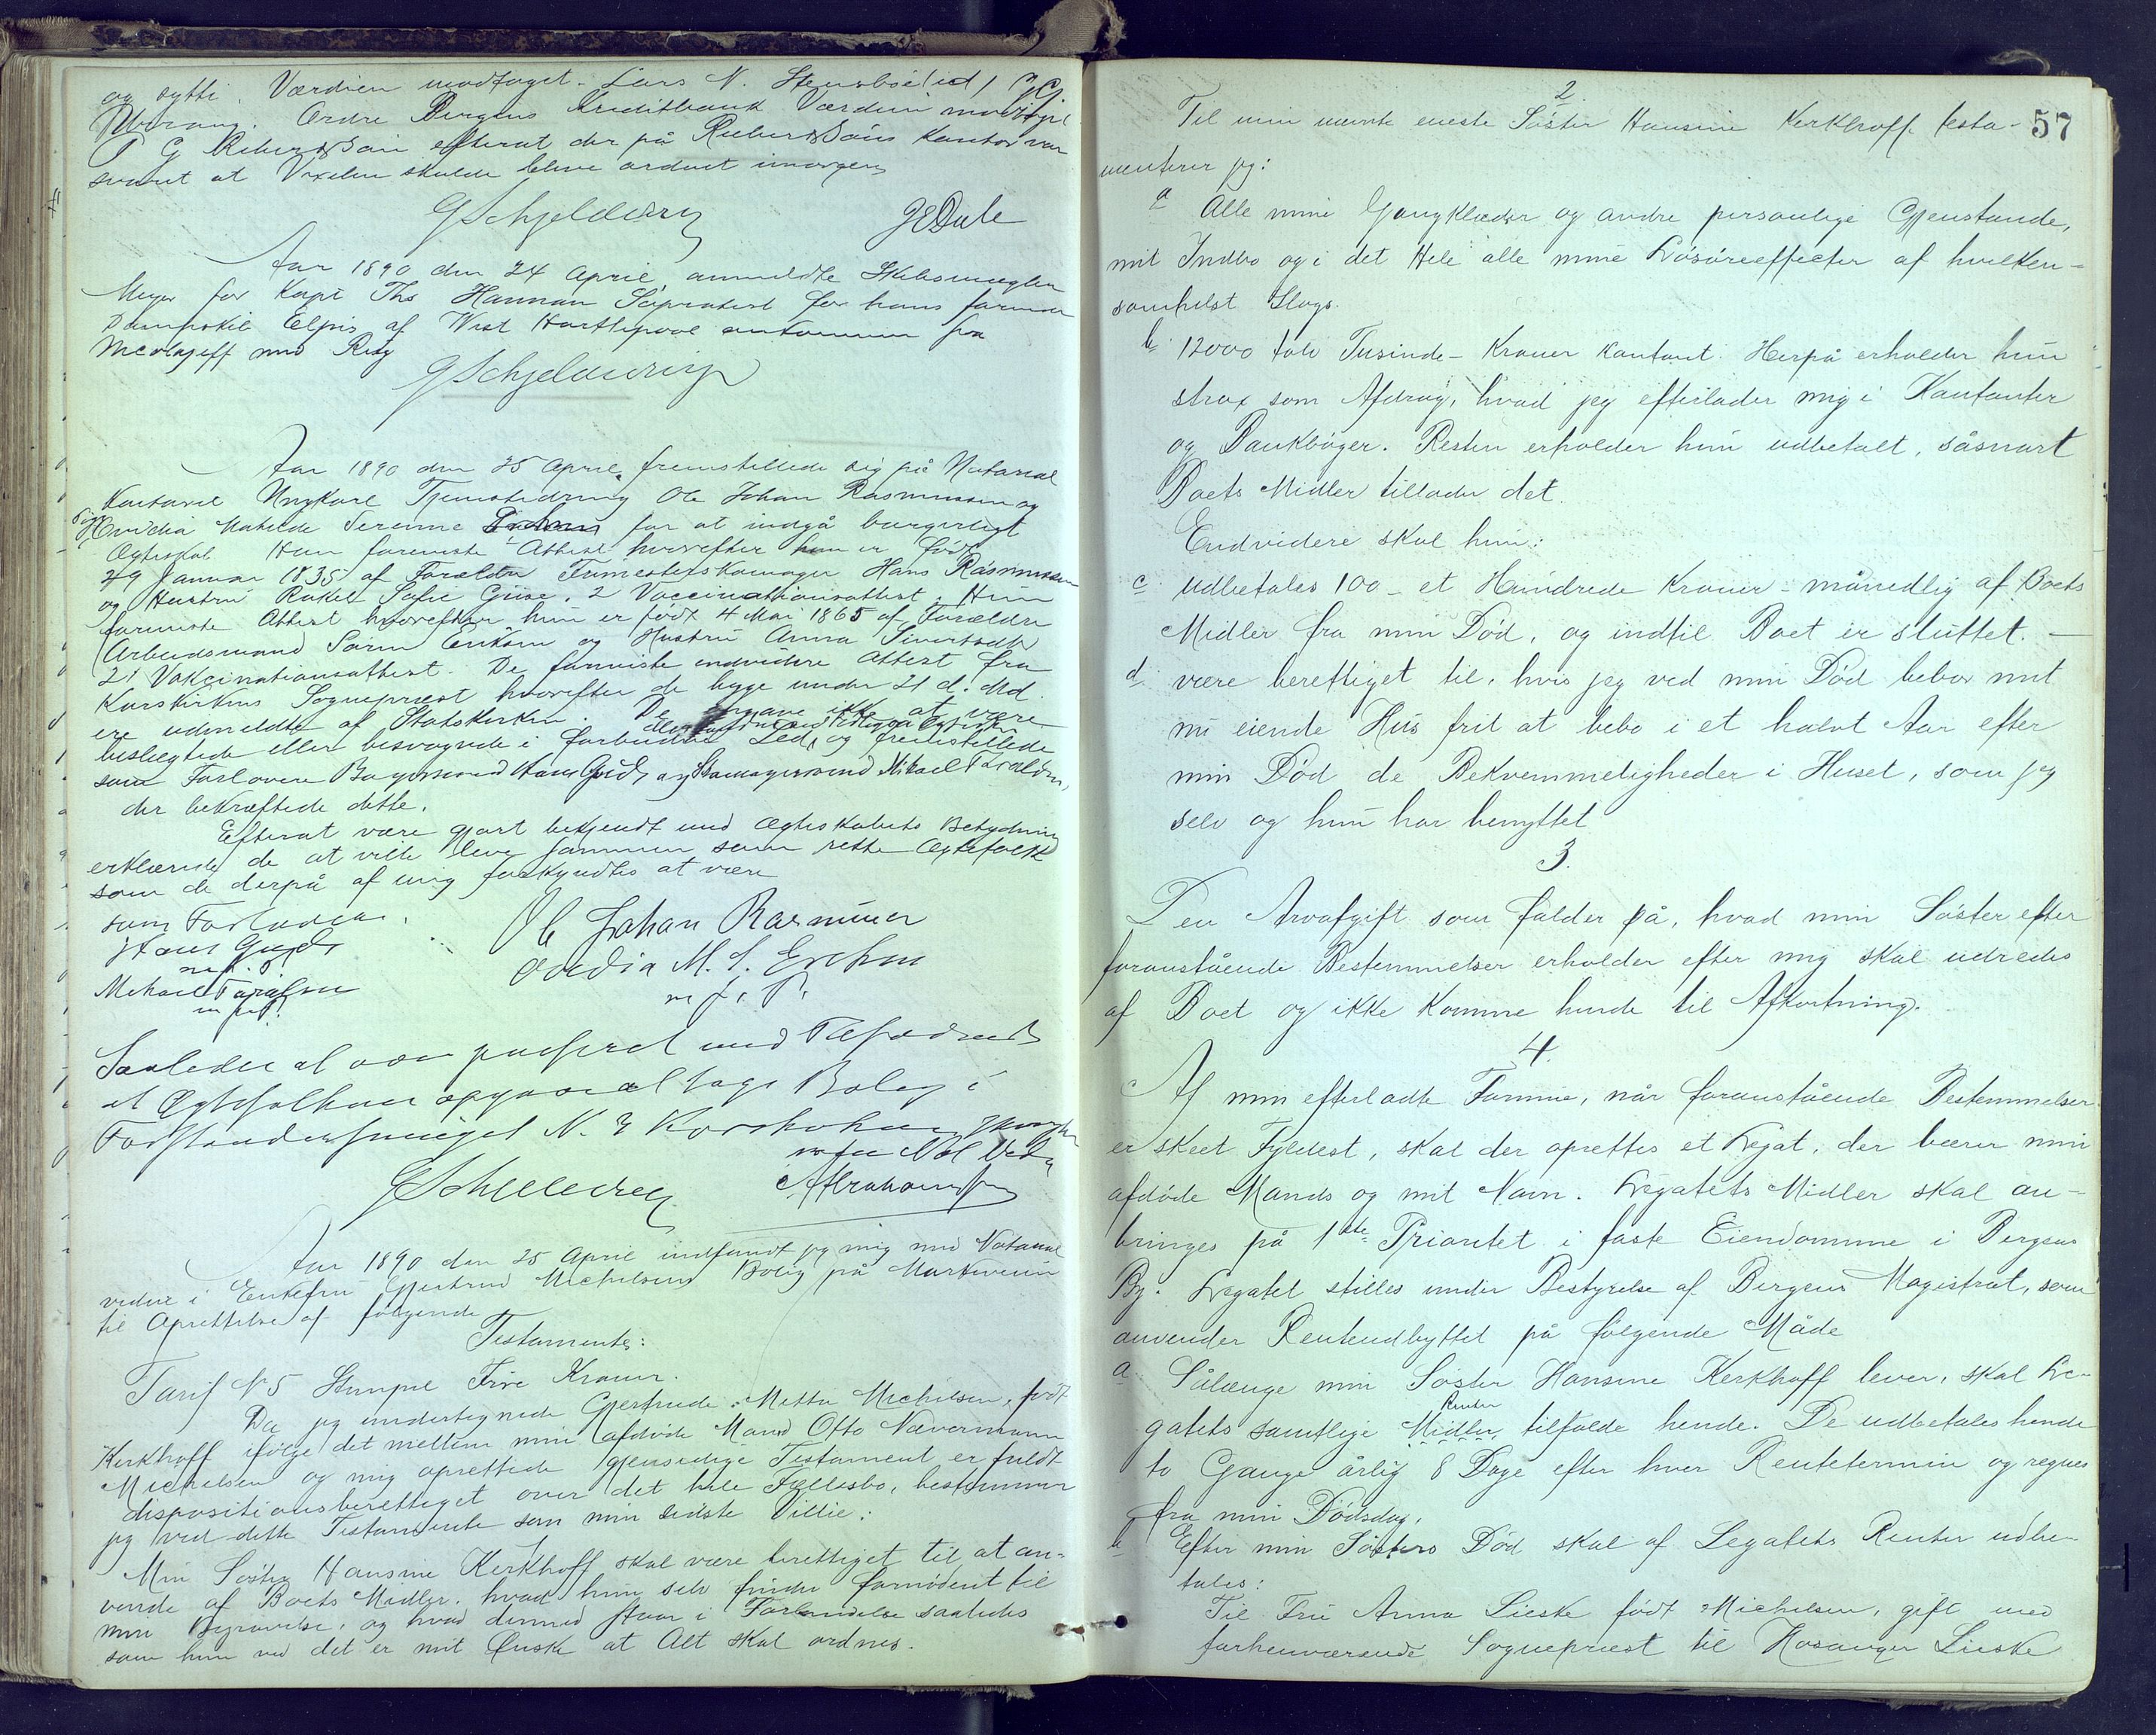 og sytti. Værdien modtaget. Lars N. Stensbøe (ed)
Ordre Bergens Kreditbank Værdien modtaget
P G Rieber & Søn efterat der på Rieber & Søns Kontor var
svaret at Vexelen skulde blive ordnet imorgen
G Schjelderup
JE Dale
Aar 1890 den 24 April anmeldte Skibsmægler
Meyer for Kapt Ths Hannan Søprotest for hans førende
Dampskib Elpis af West Hartlepool ankommen fra
Nicolajeff med Rug
G Schjelderup
Aar 1890 den 25 April fremstillede sig på Notarial
Kontoret Ungkarl Ole Johan Rasmussen og
Pige Ovidia Matilde Serenne for at indgå borgerligt
Ægteskab Han foreviste Attest hvorefter han er født
29 Januar 1835 af Forældre Hans Rasmussen
og Hustru Rakel Sofie Grise. 2 Vaccinationsattest. Hun
foreviste Attest hvorefter hun er født 4 Mai 1865 af Forældre
Arbeidsmand Søren Eriksen og Hustru Anna Sivertsdtr
2) Vakcinationsattest. De foreviste endvidere Attest fra
Korskirkens Sogneprest hvorefter de begge under 21 d. Md.
ere udmeldte af Statskirken. De angave ikke at være
beslægtede eller besvogrede i forbudne Led, og fremstillede
som Forlovere Bogermand Hans Gjed og Skomagersvend Mikael Taraldsen,
der bekræftede dette.
Efterat være gjort bekjendt med Ægteskabets Betydning
erklærede de at ville leve sammen som rette Ægtefolk
som de derpå af mig forkyndtes at være
som Forlovere. Ole Johan Rasmussen
Hans Gjed Ovidia M. S. Erichsen
m. f. P.
Mikael Taraldsen
m. f. P.
Saaledes at være passeret med Tilføiende
at Ægtefolkene opgave at tage Bolig i
N. 3
G Schjelderup
Abrahamsen
Aar 1890 den 25 April indfandt jeg mig med Notarial
vidne i Enkefru Gjertrud Michelsens Bolig på Markeveien
til Oprettelse af følgende
Testamente:
Tarif N 5 Stempel Fire Kroner.
Da jeg undertegnede Gjertrude Mette Michelsen, født
Kerkhoff ifølge det mellem min afdøde Mand Otto Nævermann
Michelsen og mig oprettede gjensidige Testament er fuldt
dispositionsberettiget over det hele Fællesbo, bestemmer
jeg ved dette Testamente som min sidste Villie:
Min Søster Hansine Kerkhoff skal være berettiget til at an-
vende af Boets Midler hvad hun selv finder fornødent til
min Begravelse, og hvad dermed staar i Forbindelse saaledes
som hun ved det er mit Ønske at Alt skal ordnes.
57
2.
Til min nævnte eneste Søster Hansine Kerkhoff testa-
menterer jeg:
a Alle mine Gangklæder og andre personlige Gjenstande,
mit Indbo og i det Hele alle mine Løsøreeffecter af hvilken-
somhelst Slags.
b. 12000 tolv Tusinde - Kroner kontant. Herpå erholder hun
strax som Afdrag, hvad jeg efterlader mig i Kontanter
og Bankbøger. Resten erholder hun udbetalt, såsnart
Boets Midler tillader det.
Endvidere skal hun:
c udbetales 100 - et Hundrede Kroner - månedlig af Boets
Midler fra min Død, og indtil Boet er sluttet. —
d. være berettiget til, hvis jeg ved min Død bebor mit
nu eiende Hus frit at bebo i et halvt Aar efter
min Død de Bekvemmeligheder i Huset, som jeg
selv og hun har benyttet
3.
Den Arveafgift som falder på, hvad min Søster efter
foranstående Bestemmelser erholder efter mig skal udredes
af Boet og ikke komme hende til Afkortning.
4.
Af min efterladte Formue, når foranstående Bestemmelser
er skeet Fyldest, skal der oprettes et Legat, der bærer min
afdøde Mands og mit Navn. Legatets Midler skal an-
bringes på 1ste Prioritet i faste Eiendomme i Bergens
By. Legatet stilles under Bestyrelse af Bergens Magistrat, som
anvender Renteudbyttet på følgende Måde
a. Sålænge min Søster Hansine Kerkhoff lever, skal Le-
Renter
gatets samtlige Midler tilfalde hende. De udbetales hende
to Gange årlig 8 Dage efter hver Rentetermin og regnes
fra min Dødsdag.
b Efter min Søsters Død skal af Legatets Renter udbe-
tales:
Til Fru Anna Lieske født Michelsen, gift med
forhenværende Sogneprest til Hosanger Lieske